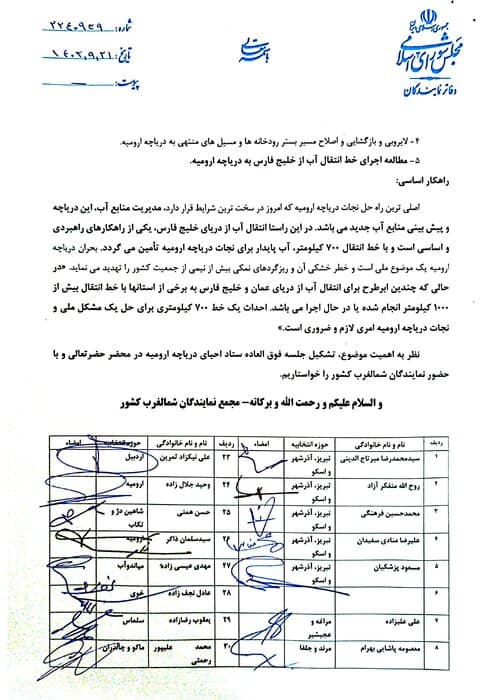 جمهوری اسلامی ایران
مجلس شورای اسلامی
دفاتر نمایندگان
باسمه تعالی
شماره: ۳۲۴۰۹۵۹
تاریخ: ۱۴۰۲,۹,۲۱
پیوست:
۴- لایروبی و بازگشایی و اصلاح مسیر بستر رودخانه ها و مسیل های منتهی به دریاچه ارومیه.
۵- مطالعه اجرای خط انتقال آب از خلیج فارس به دریاچه ارومیه.
راهکار اساسی:
اصلی ترین راه حل نجات دریاچه ارومیه که امروز در سخت ترین شرایط قرار دارد، مدیریت منابع آب، این دریاچه
و پیش بینی منابع آب جدید می باشد. در این راستا انتقال آب از دریای خلیج فارس، یکی از راهکارهای راهبردی
و اساسی است و با خط انتقال ۷۰۰ کیلومتر، آب پایدار برای نجات دریاچه ارومیه تأمین می گردد. بحران دریاچه
ارومیه یک موضوع ملی است و خطر خشکی آن و ریزگردهای نمکی بیش از نیمی از جمعیت کشور را تهدید می نماید. «در
حالی که چندین ابرطرح برای انتقال آب از دریای عمان و خلیج فارس به برخی از استانها با خط انتقال بیش از
۱۰۰۰ کیلومتر انجام شده یا در حال اجرا می باشد. احداث یک خط ۷۰۰ کیلومتری برای حل یک مشکل ملی و
نجات دریاچه ارومیه امری لازم و ضروری است.»
نظر به اهمیت موضوع، تشکیل جلسه فوق العاده ستاد احیای دریاچه ارومیه در محضر حضرتعالی و با
حضور نمایندگان شمالغرب کشور را خواستاریم.
و السلام علیکم و رحمت الله و برکاته- مجمع نمایندگان شمالغرب کشور
ردیف نام و نام خانوادگی حوزه انتخابیه امضاء ردیف نام و نام خانوادگی حوزه انتخابیه امضاء
۱ سیدمحمدرضا میرتاج الدینی تبریز، آذرشهر و اسکو ۲۳ علی نیکزاد ثمرین اردبیل
۲ روح الله متفکر آزاد تبریز، آذرشهر و اسکو ۲۴ وحید جلال زاده ارومیه
۳ محمدحسین فرهنگی تبریز، آذرشهر و اسکو ۲۵ حسن همتی شاهین دژ و تکاب
۴ علیرضا منادی سفیدان تبریز، آذرشهر و اسکو ۲۶ سیدسلمان ذاکر ارومیه
۵ مسعود پزشکیان تبریز، آذرشهر و اسکو ۲۷ مهدی عیسی زاده میاندوآب
۶ ۲۸ عادل نجف زاده خوی
۷ علی علیزاده مراغه و عجبشیر ۲۹ یعقوب رضازاده سلماس
۸ معصومه پاشایی بهرام مرند و جلفا ۳۰ محمد علیپور رحمتی ماکو و چالدران